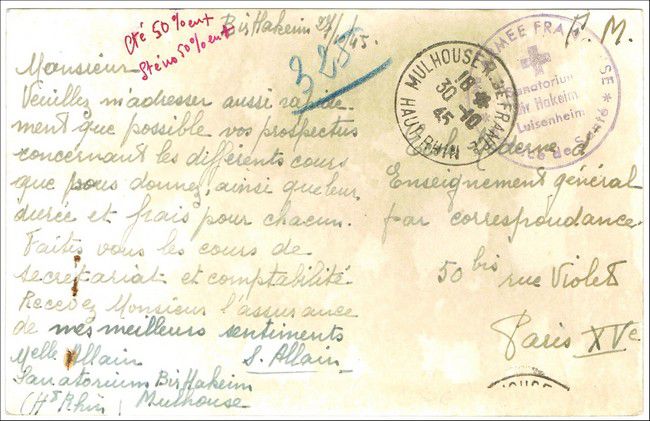 Cté 50% ent
Sténo 50% ent
Bir Hakeim 27/ /45.
328
F. M.
Monsieur
Veuillez m'adresser aussi rapide-
ment que possible vos prospectus
concernant les différents cours
que vous donnez, ainsi que leur
durée et frais pour chacun.
Faites vous les cours de
secrétariat et comptabilité
Recevez Monsieur l'assurance
de mes meilleurs sentiments
Melle Allain S. Allain
Sanatorium Bir Hakeim
(Ht Rhin) Mulhouse
MULHOUSE R. DE FRANCE
18 H
30 -10
45
HAUT-RHIN
ARMEE FRANÇAISE
Sanatorium
Bir Hakeim
Luisenheim
Ecole Moderne d'
Enseignement général
par correspondance
50 bis rue Violet
Paris XVe